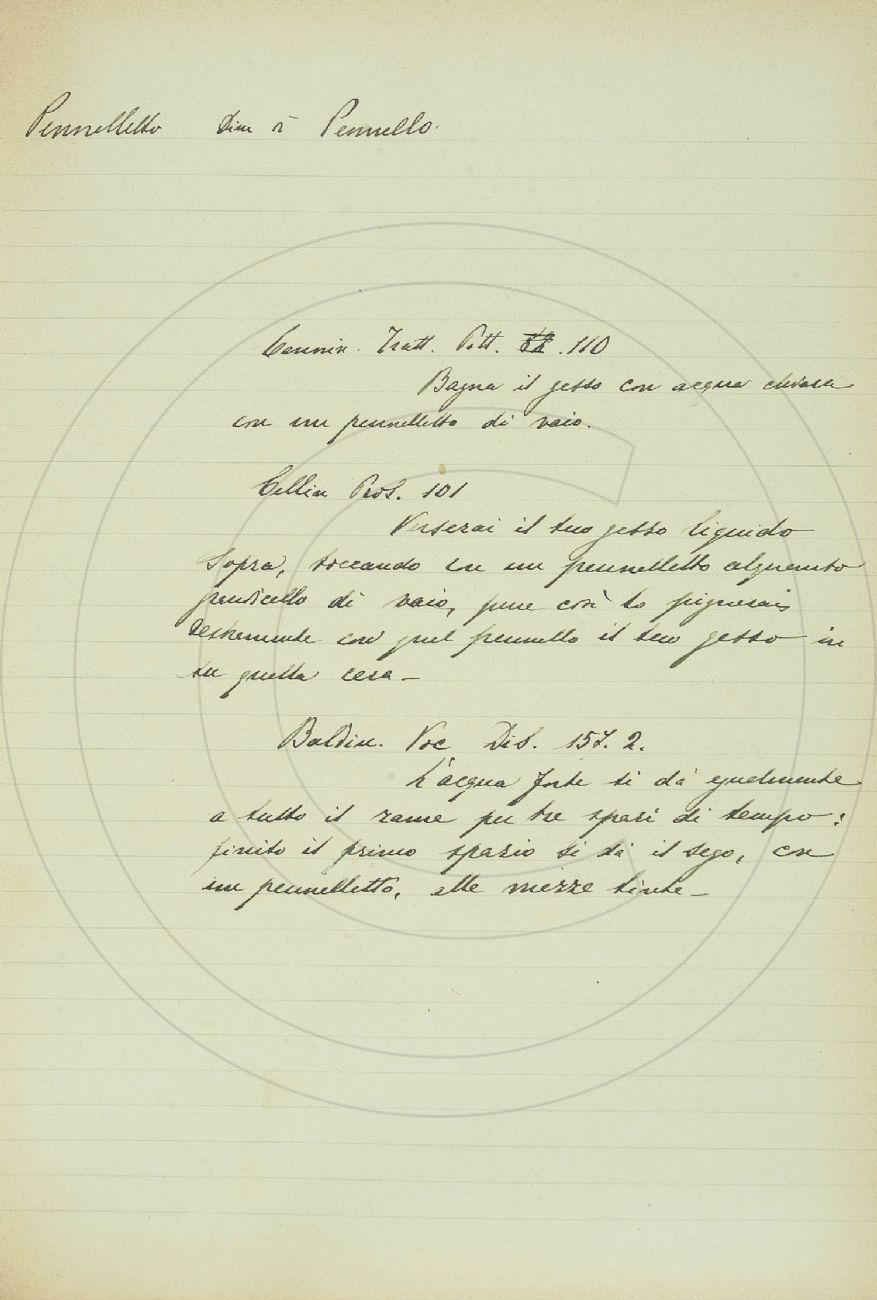 Pennelletto Dim di Pennello.
Cennin. Tratt. Pitt. 110
Bagna il gesso con acqua chiara
con un pennelletto di vaio.
Cellin Pros. 101
Verserai il tuo gesso liquido
sopra, toccando con un pennelletto alquanto
grandicello di vaio, pure così lo pignerai
destramente con quel pennello il tuo gesso in
su quella cera -
Baldin. Voc Dis. 157. 2.
L'acqua forte si dà egualmente
a tutto il rame per tre spazi di tempo:
finito il primo spazio si dà il sego, con
un pennelletto, alle mezze tinte -